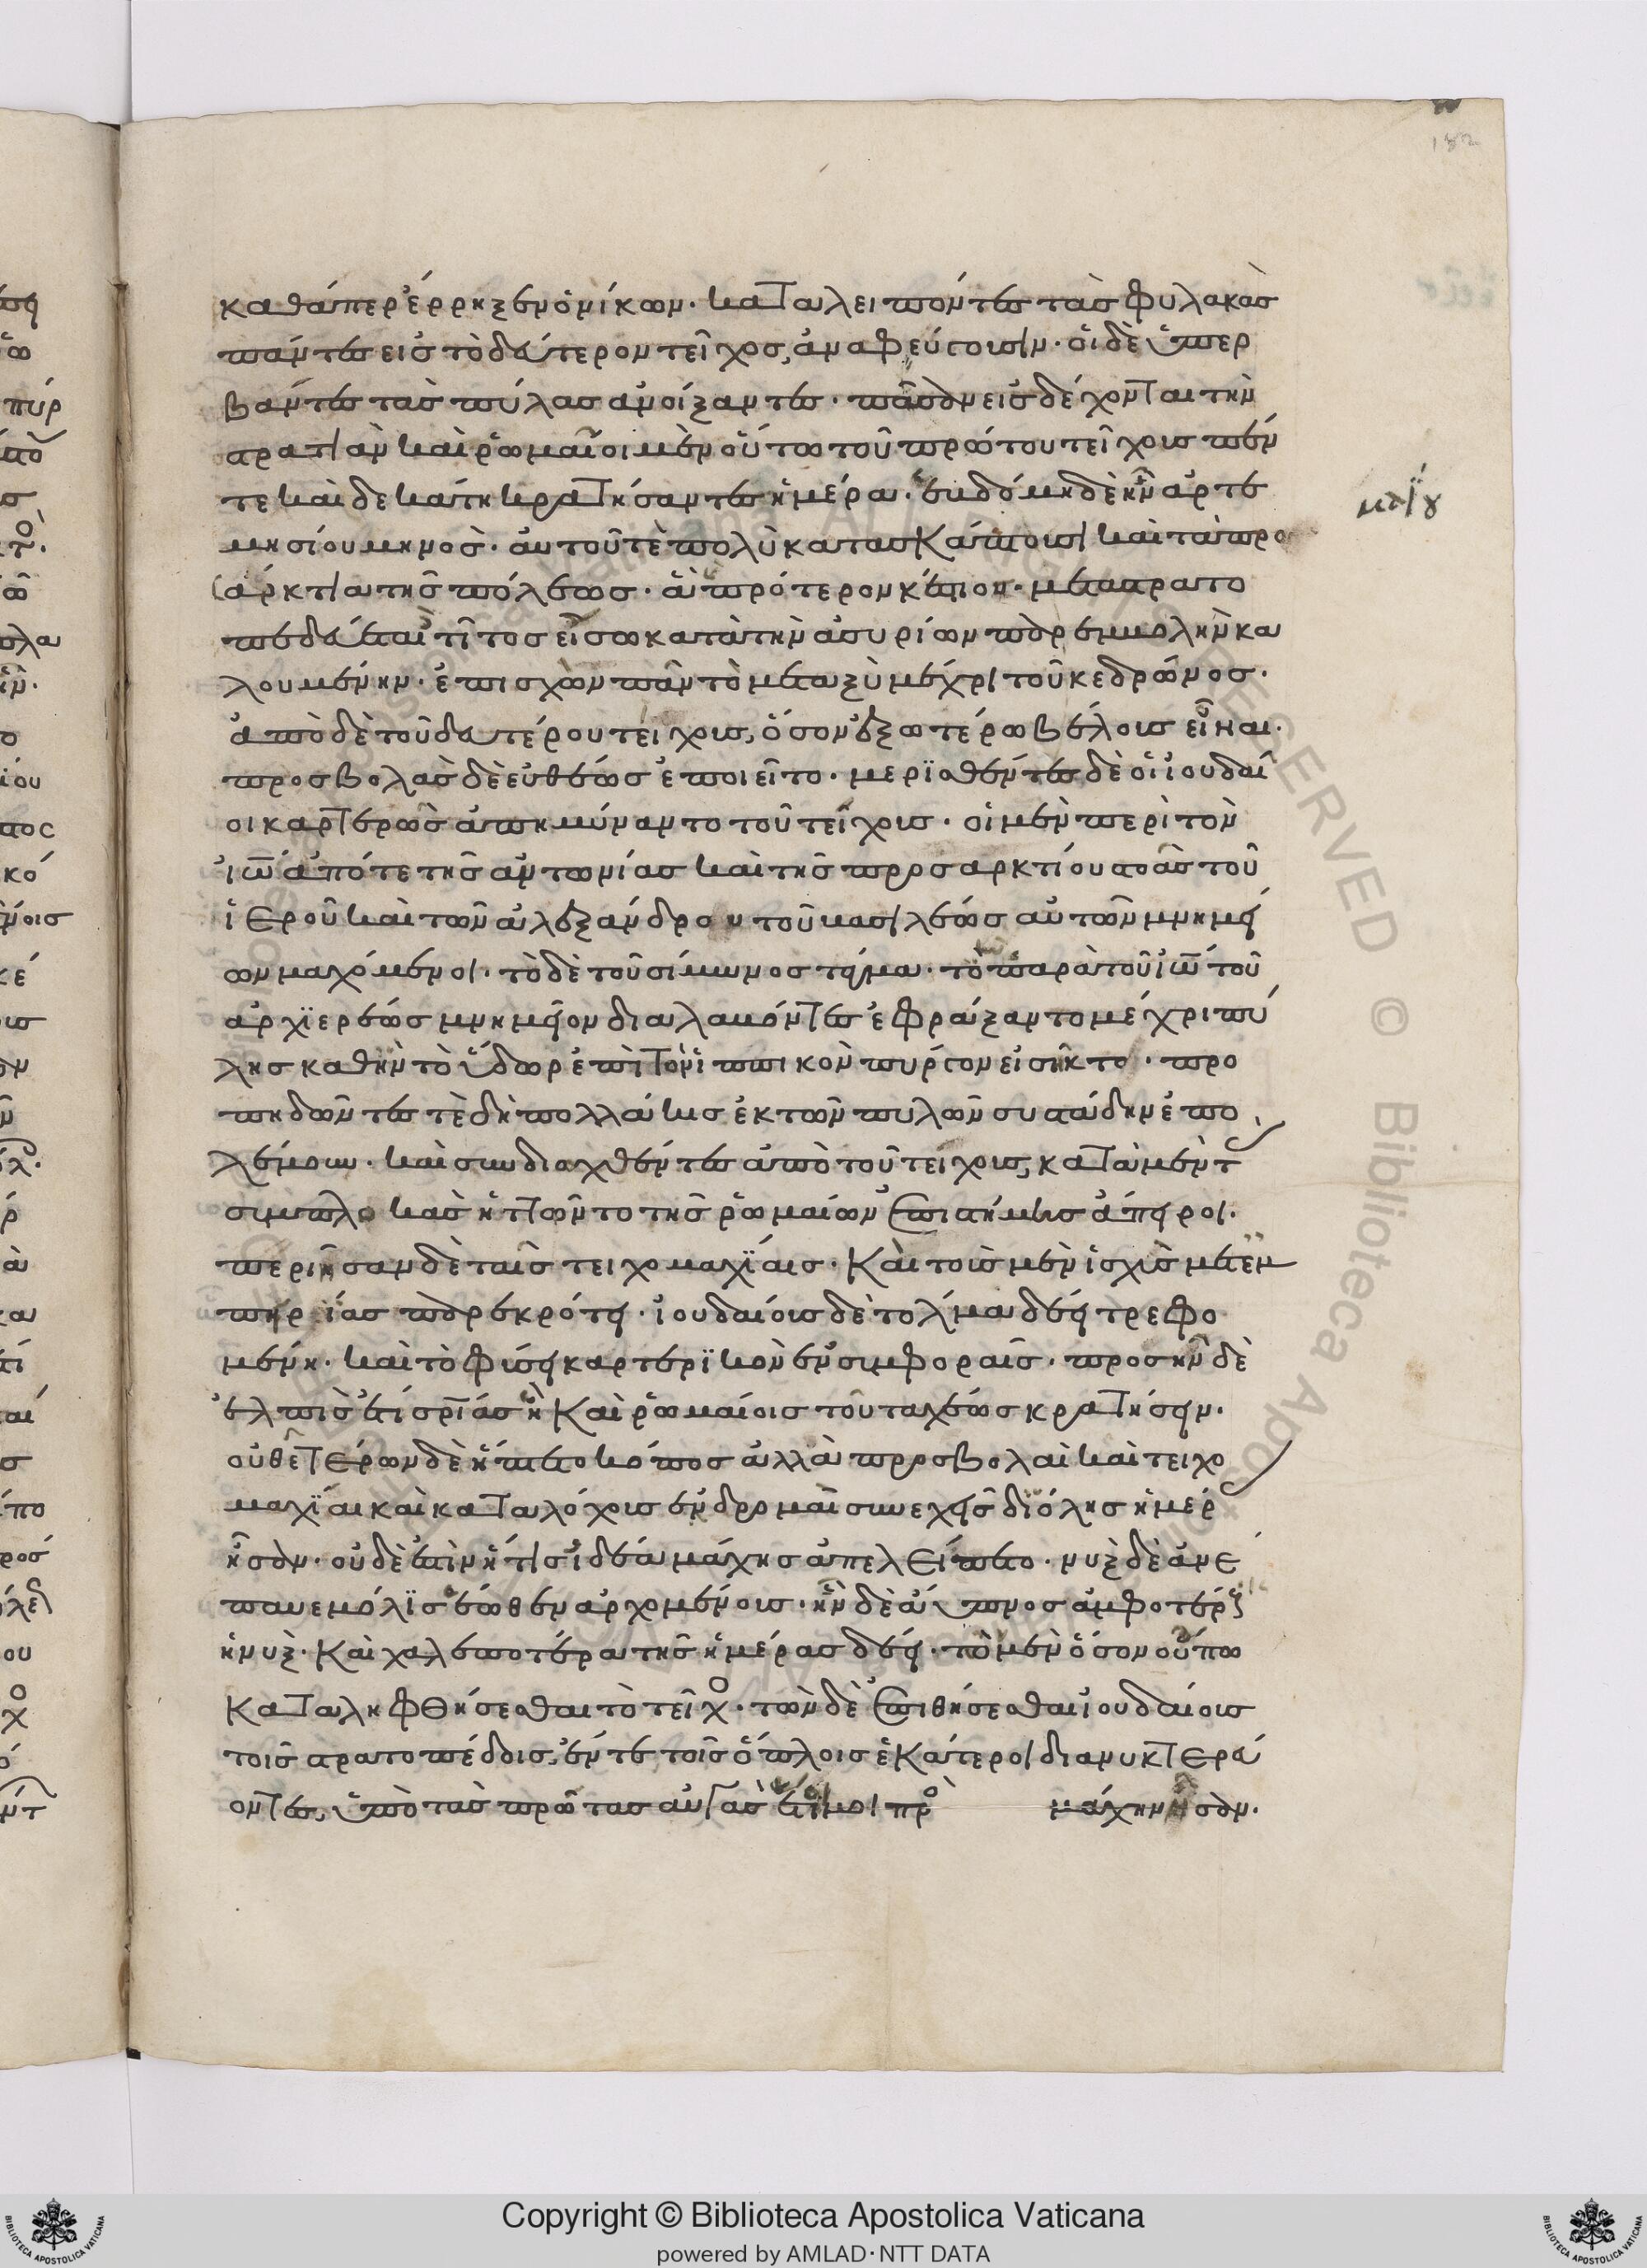 καθάπερ ἔρρηξεν ὁ νίκων· καταλειπόντες τὰς φυλακὰς
πάντες εἰς τὸ δεύτερον τεῖχος, ἀναφεύγουσιν· οἱ δὲ ὑπερ
βάντες τὰς πύλας ἀνοίξαντες· πᾶσαν εἰσδέχονται τὴν
στρατιὰν καὶ ῥωμαῖοι μὲν οὕτω τοῦ πρώτου τείχους πέν
τε καὶ δεκάτη κρατήσαντες ἡμέρα· ἑβδόμη δὲ ἦν ἀρτε
μησίου μηνὸς· αὐτοῦ τὲ πολὺ κατασκάπτουσι καὶ τὰ προ
σάρκτια τῆς πόλεως· ἃ πρότερον κέστιον· μεταστρατο
πεδεύεται τίτος εἴσω κατὰ τὴν ἀσυρίων παρεμβολὴν κα
λουμένην· ἐπισχὼν πᾶν τὸ μεταξὺ μέχρι τοῦ κεδρῶνος·
ἀπὸ δὲ τοῦ δευτέρου τείχους, ὅσον ἐξωτέρω βέλους εἶναι·
προσβολὰς δὲ εὐθέως ἐποιεῖτο· μερισθέντες δὲ οἱ ἰουδαῖ
οι καρτερῶς ἀπημύναντο τοῦ τείχους· οἱ μὲν περὶ τὸν
ἰω ἀπό τε τῆς ἀντωνίας καὶ τῆς προσαρκτίου στοᾶς τοῦ
ἱεροῦ καὶ τῶν ἀλεξάνδρου τοῦ βασιλέως αὐτῶν μνημεί
ων μαχόμενοι· τὸ δὲ τοῦ σίμωνος τάγμα· τὸ παρὰ τοῦ ἰω τοῦ
ἀρχιερέως μνημεῖον διαλαβόντες ἐφράξαντο μέχρι πύ
λης καθ ἣν τὸ ὕδωρ ἐπὶ τὸν ἱππικὸν πύργον εἰσῆκτο· προ
πηδῶντες τὲ δὴ πολλάκις ἐκ τῶν πυλῶν συστάδην ἐπο
λέμουν· καὶ συνδιωχθέντες ἀπὸ τοῦ τείχους, κατὰ μὲν τ
συμπλοκὰς ἡττῶντο τῆς ῥωμαίων ἐπιστήμης ἄπειροι·
περιῆσαν δὲ ταῖς τειχομαχίαις· Καὶ τοῖς μὲν ἰσχὺς μετ ἐμ
πειρίας παρεκρότει· ἰουδαίοις δὲ τόλμα δέει τρεφο
μένη· καὶ τὸ φύσει καρτερικὸν ἐν συμφοραῖς· προσῆν δὲ
ἐλπὶς ἔτι σρίας ἢ Καὶ ῥωμαίοις τοῦ ταχέως κρατήσειν·
οὐθετέρων δὲ ἥπτετο κόπος ἀλλὰ προσβολαὶ καὶ τειχο
μαχίαι καὶ κατα λόχους ἐνδρομαὶ συνεχεῖς δι ὅλης ἡμέρ
ἦσαν· οὐδὲ ἔστιν ἥτις ἰδέα μάχης ἀπελείπετο· νὺξ δὲ ἀνέ
παυε μόλις ἕωθεν ἀρχομένους· ἦν δὲ ἄυπνος ἀμφοτέροις
ἡ νύξ· Καὶ χαλεπωτέρα τῆς ἡμέρας δέει· τῶ μὲν ὅσον οὔπω
Καταληφθήσεσθαι τὸ τεῖχο· τῶν δὲ ἐπιθήσεσθαι ἰουδαίους
τοῖς στρατοπέδοις, ἔν τε τοῖς ὅπλοις ἑκάτεροι διανυκτερεύ
οντες, ὑπὸ τὰς πρώτας αὐγὰς ἕτοιμοι πρὸ μάχην ἦσαν·